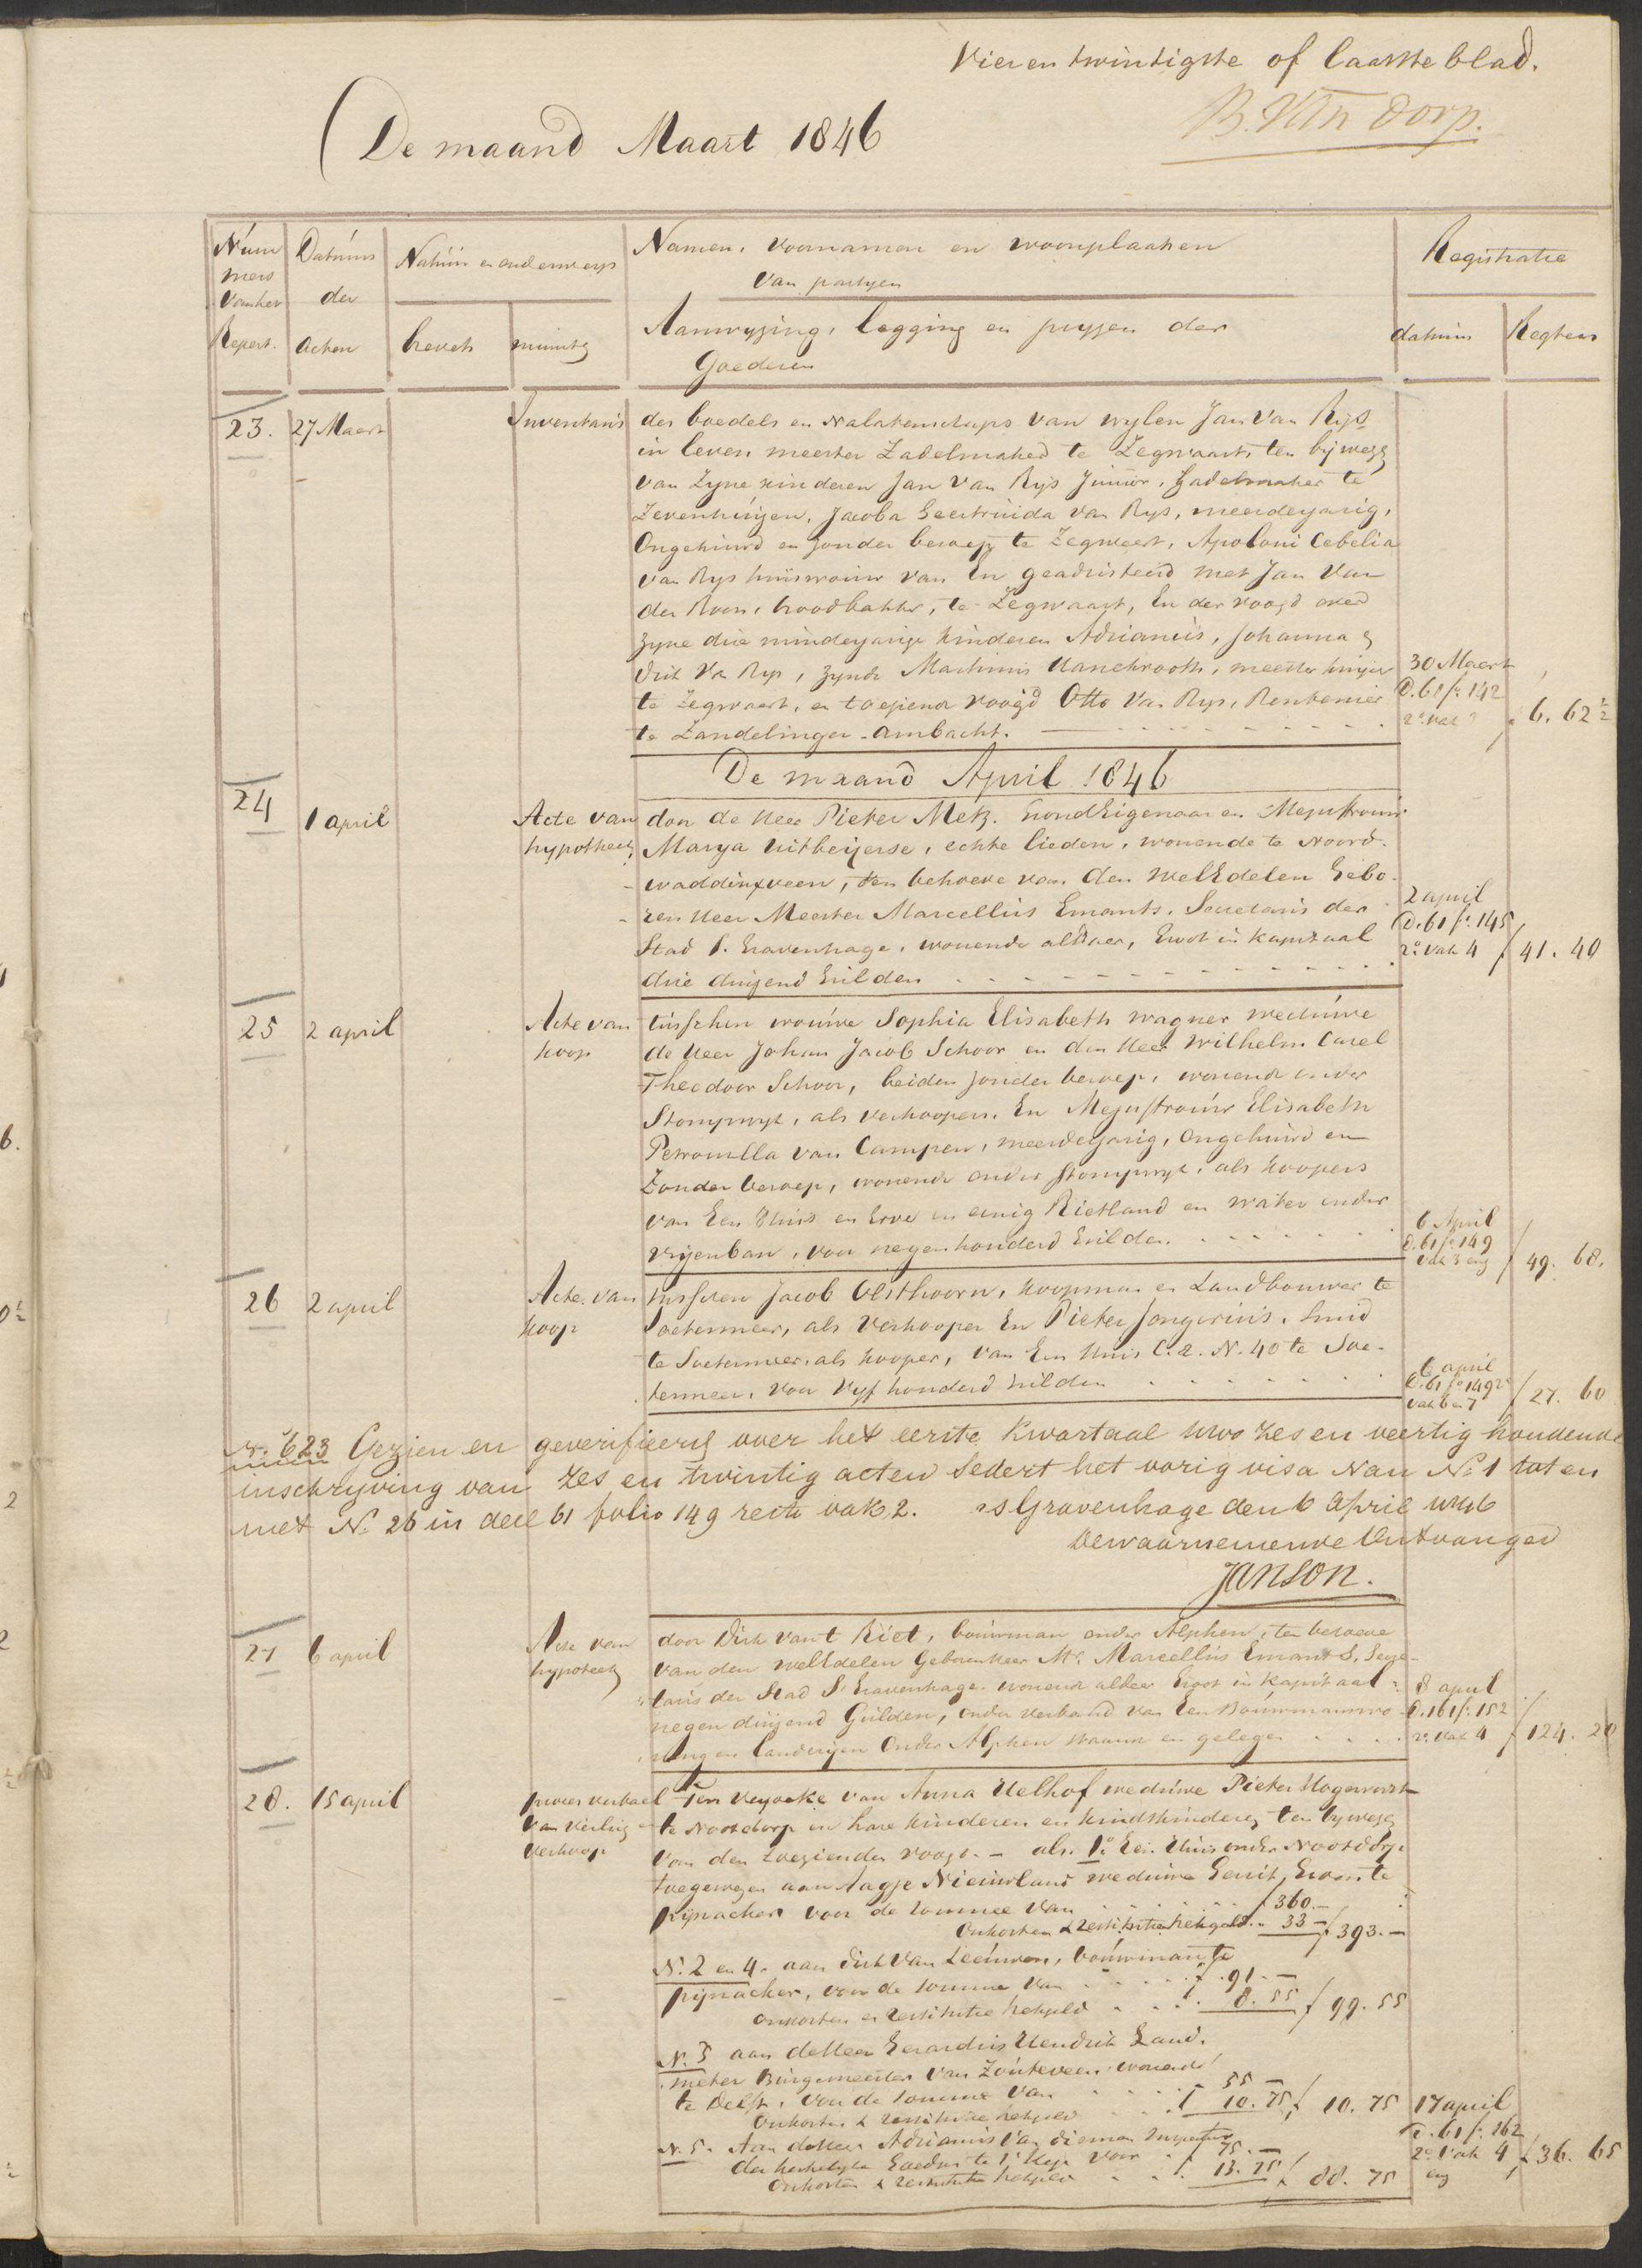 Vierentwintigste of laatste blad.
B. Van Dorp.
De maand Maart 1846
Num
mers
van het
Repert.
Datums
der
Acten
Natuur en onderwerp
brevets
minutz
Namen, voornamen en woonplaatsen
van partyen
Aanwyzing, legging en pryzen der
Goederen
Registratie
datum
Regten
23. 27 Maart Inventaris des boedels en nalatenschaps van wylen Jan Van Rijs
in leven meester Zadelmaker te Zegwaart, ten bijwezz
van Zyne kinderen Jan Van Rys Junior, Zadelmaker te
Zevenhuijzen, Jacoba Geertruida van Rys, meerderjarig,
Ongehuwd en zonder beroep te Zegwaert, Apoloni Cebelia
van Rys huisvrouw van En geadsisteerd met Jan Van
der Roon, broodbakker, te Zegwaart, En der voogd over
zyne drie minderjarige kinderen Adrianus, Johanna &
Dirk Van Rys, zynde Martinus, meester
te Zegwaart, en toeziend voogd Otto Van Rys, Rentenier
te Zandelinger-Ambacht.
30 Maart
D. 61 f. 142
6. 62½
De maand April 1846
24 1 april Acte van door de Heer Pieter Metz. GrondEigenaar en Mejufvrouw
hypotheek Marya Uitbeijerse, echte lieden, wonende te Noord-
waddinxveen, ten behoeve van den WelEdelen Gebo-
ren Heer Meester Marcellus Emants, Secretaris der
Stad S. Gravenhage, wonende aldaer, Groot in kapitaal
drie duizend Gulden
2 april
D. 61 f. 145
r. vak 4 f 41. 40
25 2 april Acte van tusschen vrouwe Sophia Elisabeth Wagner weduwe
koop de Heer Johan Jacob Schoor en den Heer Wilhelm Carel
Theodoor Schoor, beiden zonder beroep, wonende onder
Stompwyk, als verkoopers. En Mejufvrouw Elisabeth
Petronella van Campen, meerderjarig, Ongehuwd en
Zonder beroep, wonende onder Stompwyk, als koopers
van Een Huis en Erve en eenig Rietland en water onder
Vrijenban, voor negenhonderd Gulden.
6 April
D. 61 f. 149
vak 3 enz f 49. 68.
26 2 april Acte van tusschen Jacob Olsthoorn, koopman en Landbouwer te
koop Soetermeer, als Verkooper En Pieter Jongerius, Smid
te Soetermeer, als kooper, van Een Huis C. 2. N. 40 te Soe-
termeer, voor Vyf honderd Gulden
6 april
D. 61 f. 149
vak 6 en 7 f 27. 60
N. 623 Gezien en geverifieerd over het eerste kwartaal zes en veertig houdende
inschrijving van zes en twintig acten sedert het vorig visa van N. 1 tot en
met N. 26 in deel 61 folio 149 recto vak 2. 's Gravenhage den 6 april
De waarnemende Ontvanger
Janson.
27 6 april Acte van door Dirk van't Riet, bouwman onder Alphen, ten behoeve
hypoteek van den WelEdelen Geboren Heer Mr. Marcellus Emants, Secre-
taris der Stad S. Gravenhage wonend aldaer Groot in kapitaal
negen duizend Gulden, onder verband van Een Bouwmanswo-
ning en landeryen Onder Alphen staand en gelegen
8 april
D. 61 f. 152
r. vak 4 f 124. 20
28. 15 april proces verbael Ten verzoeke van Anna Uelhof weduwe Pieter Hogervorst
van veiling en te Nootdorp en hare kinderen en kindskinderen ten bywezz
verkoop van den toeziender voogd. – als. 1o. Een Huis onder Nootdorp
toegewezen aan Aagje Nieuwland weduwe Gerrit te
Pijnacker voor de somme van f 360.–
Onkosten & restitutie hekgeld 33 – f 393. –
N. 2 en 4. aan Dirk Van Leeuwen, bouwman te
Pijnacker, voor de somme van f 91. –
onkosten en restitutie hekgeld 8. 55 f 99. 55
N. 3 aan de Heer Gerardus Hendrik Zand.
meter Burgemeester van Zouteveen, wonend
te Delft, voor de somme van 55 –
Onkosten & restitutie hekgeld f 10. 75 f 10. 75
N. 5. Aan de Heer Adrianus Van Diemen
der kerkelyke Goederen te voor 75. –
Onkosten & restitutie hekgeld 13. 75 f 88. 75
17 april
D. 61 f. 162
r. vak 4 f 36. 65
enz